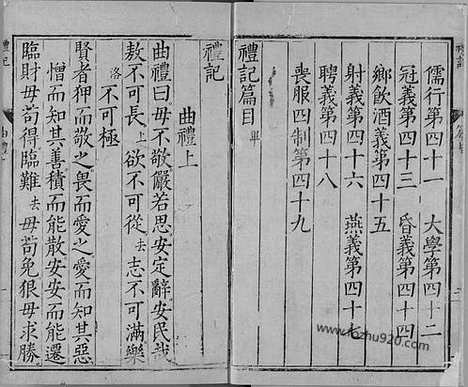 儒行第四十一　大學第四十二
冠義第四十三　昏義第四十四
鄉飲酒義第四十五
射義第四十六　燕義第四十七
聘義第四十八
喪服四制第四十九
禮記篇目畢
禮記
曲禮上
曲禮曰毋不敬儼若思安定辭安民哉
敖不可長上欲不可從去志不可滿樂
洛不可極
賢者狎而敬之畏而愛之愛而知其惡
憎而知其善積而能散安安而能遷
臨財毋苟得臨難去毋苟免狠毋求勝